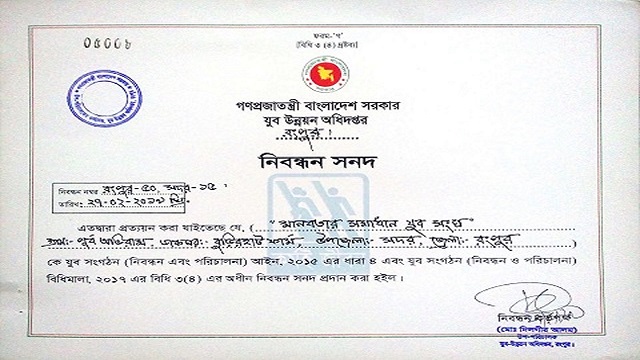 ফরম-'গ'
[বিধি ৩ (৪) দ্রষ্টব্য]
গণপ্রজাতন্ত্রী বাংলাদেশ সরকার
যুব উন্নয়ন অধিদপ্তর
রংপুর।
নিবন্ধন সনদ
নিবন্ধন নম্বর রংপুর-৫০, সদর-১৫
তারিখ:
এতদ্বারা প্রত্যয়ন করা যাইতেছে যে, ( "মানবতার সমাধান যুব সংঘ"
পূর্ব অভিরাম, বুড়িরহাট ফার্ম, উপজেলা- সদর, জেলা- রংপুর )
কে যুব সংগঠন (নিবন্ধন এবং পরিচালনা) আইন, ২০১৫ এর ধারা ৪ এবং যুব সংগঠন (নিবন্ধন ও পরিচালনা)
বিধিমালা, ২০১৭ এর বিধি ৩(৪) এর অধীন নিবন্ধন সনদ প্রদান করা হইল।
নিবন্ধন
(মোঃ দিলগীর আলম)
উপ-পরিচালক
যুব-উন্নয়ন অধিদপ্তর, রংপুর।